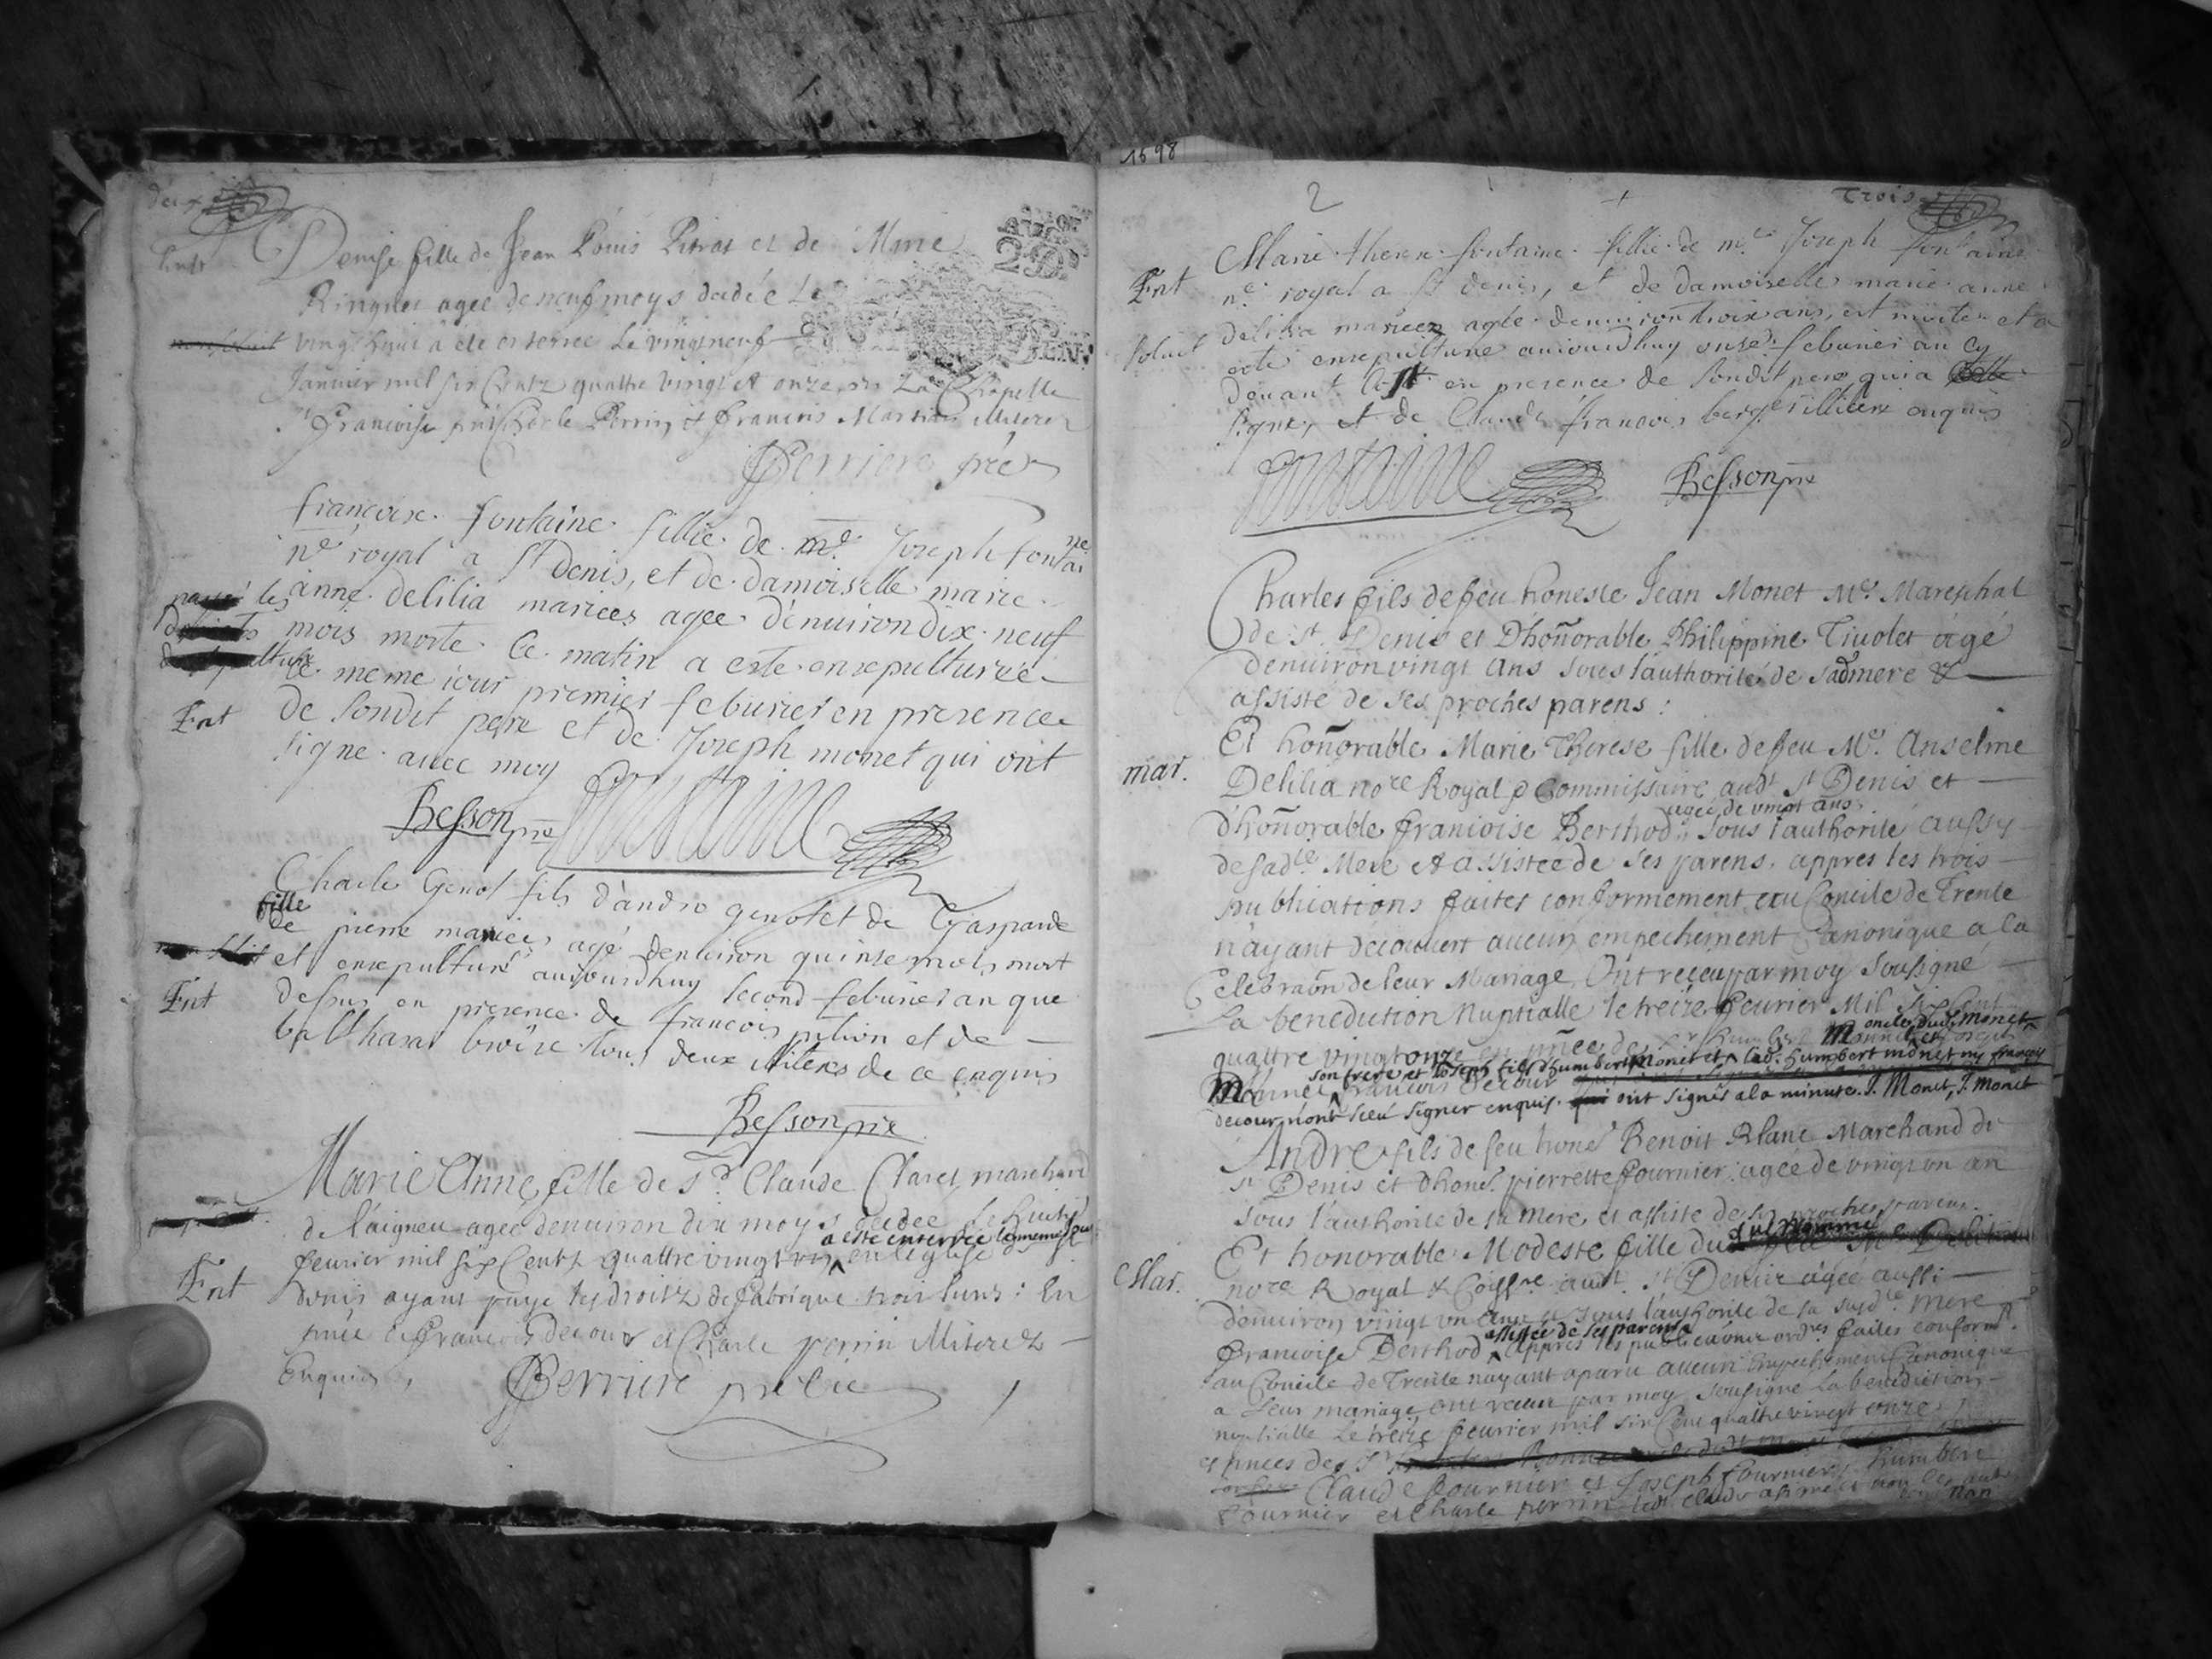 deux
Ent
Denise fille de Jean Louis Pitrat et de Marie
Ringuet agee de neuf moys dedée le
vingt huit a été enterree le vingt neuf
Janvier mil six Centz quattre vingt et onze en La Chapelle
pnts Charle Perrin & francois Martin Miterez
Perriere pre
francoise fontaine fillie de me Joseph fontaine
ne royal a st denis, et de damoiselle marie
anne delilia mariees agee denuiron dix neuf
mois morte Ce matin a este ensepulturée
le meme iour premier feburier en presence
Ent
de sondit pere et de Joseph monet qui ont
signe auec moy
Besson pre fontaine
Charle Genot fils d'andre genot et de Gasparde
fille
de pierre mariees agé denuiron quinse mois mort
et ensepulturé auiourdhuy second feburier an que
Ent
dessus en presence de francois pition et de
balthasar tous deux illiteres de ce enquis
Besson pre
Marie Anne fille de sr Claude Claret marchand
de laigneu agee denuiron dix moys decdee le huit
a esté enterrée le meme jour
feurier mil six Centz quattre vingt en l'eglise de st
Ent
Denis ayant payé les droitz de fabrique trois liures : En
pnce de Francois Decour et Charle perrin Miterez
Enquis,
Perriere pre vic
1598
2
Trois
Marie therese fontaine fillie de me Joseph fontaine
Ent
ne royal a st denis, et de damoiselle marie anne
delilia mariees agee denuiron trois ans, est morte et a
soluit
este ensepulturee auiourdhuy onse feburier an cy
deuant en presence de sondit pere qui a
signe, et de Claude francois berger illiteré enquis
fontaine Besson pre
Charles fils de feu honeste Jean Monet Me Mareschal
de st Denis et D'honnorable Philippine Tiuolet agé
denuiron vingt ans sous l'authorité de sad mere &
assisté de ses proches parens :
Et honnorable Marie Therese fille de feu Me Anselme
mar.
Delilia nore Royal & Commissaire audt st Denis et
agée de vingt ans
d'honnorable francoise Berthod sous l'authorité aussy
de sadte Mere et assistee de ses parens. appres les trois
publications faites conformement au Concile de Trente
n'ayant decouuert aucun empechement Canonique a la
Celebraon de leur Mariage, Ont receu par moy sousigné
La benediction Nuptialle le treize feurier Mil six Cent
oncle dudit monet
quattre vingt onze en pnce de sr humbert Monnet et Joseph
son frere et Joseph fils d'humbert monet et lad. humbert monet ny francois
Monnet francois Decour
decour n'ont sceu signer enquis. qui ont signés a la minute. J. Monet, J. monet
André fils de feu hones Benoit Blanc Marchand de
st Denis et d'hones pierrette fournier agée de vingt un an
sous l'authorité de sa mere et assisté de ses proches parens
susnommé
Et honorable Modeste fille du feu Me Delilia
Mar.
nore Royal & Coissre audt st Denis agée aussi
denuiron vingt un ans et sous l'authorité de sa susdte mere
assistée de ses parents
francoise Berthod appres les publicaõns ordres faites conformt
au Concile de Trente nayant aparu aucun empechement Canonique
a leur mariage ont receu par moy sousigne la benediction
nuptialle le treize feurier mil six Cent quattre vingt onze
es pnces des srs
Claude fournier et Joseph fournier, humbert
fournier et Charle perrin led claude